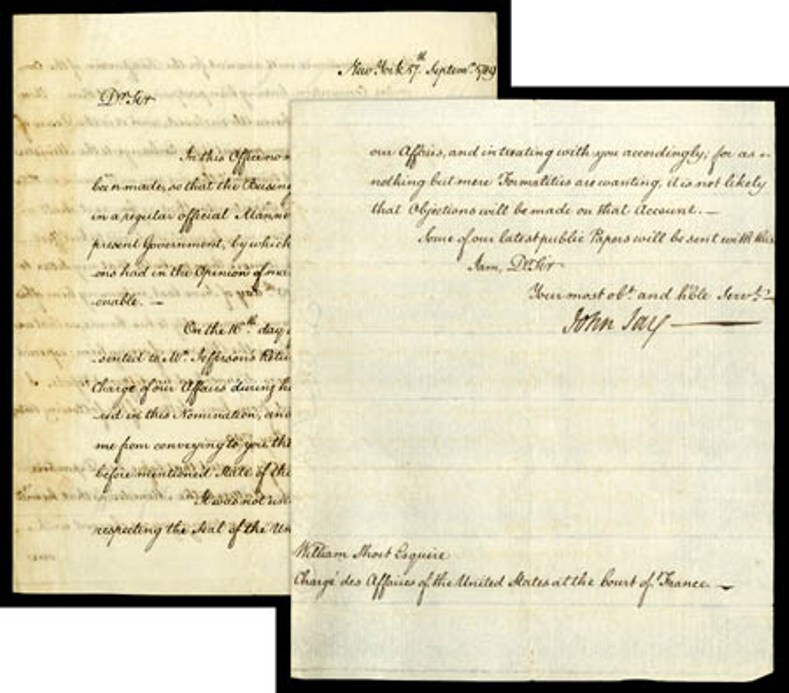 New York 17th. Septemr. 1789
Dr. Sir
In this Office no
been made, so that the Busine
in a regular official Manne
present Government, by which
ons had in the Opinion of ma
onable. —
On the 16th. day
sented to Mr. Jefferson's Retu
Charge of our Affairs during h
ed in this Nomination, and
me from conveying to you th
before mentioned State of the
It was not un
respecting the Seal of the Un
our Affairs, and in treating with you accordingly; for as
nothing but mere Formalities are wanting, it is not likely
that Objections will be made on that Account. —
Some of our latest public Papers will be sent with this
I am, Dr. Sir
Your most obt. and hble Servt.
John Jay
William Short Esquire
Chargé des Affaires of the United States at the Court of France. —